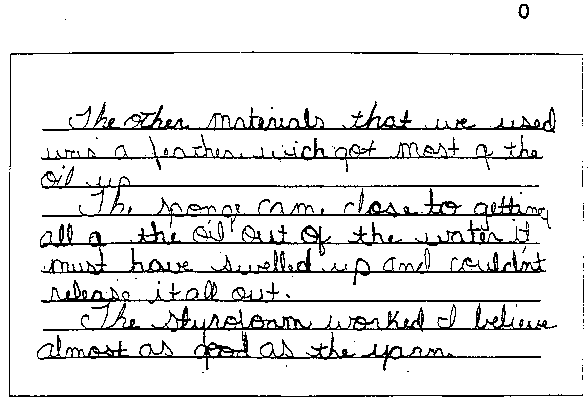 0
The other materials that we used
was a feather wich got most of the
oil up
The sponge came close to getting
all of the oil out of the water it
must have swelled up and couldn't
release it all out.
The styrofoam worked I believe
almost as good as the yarn.